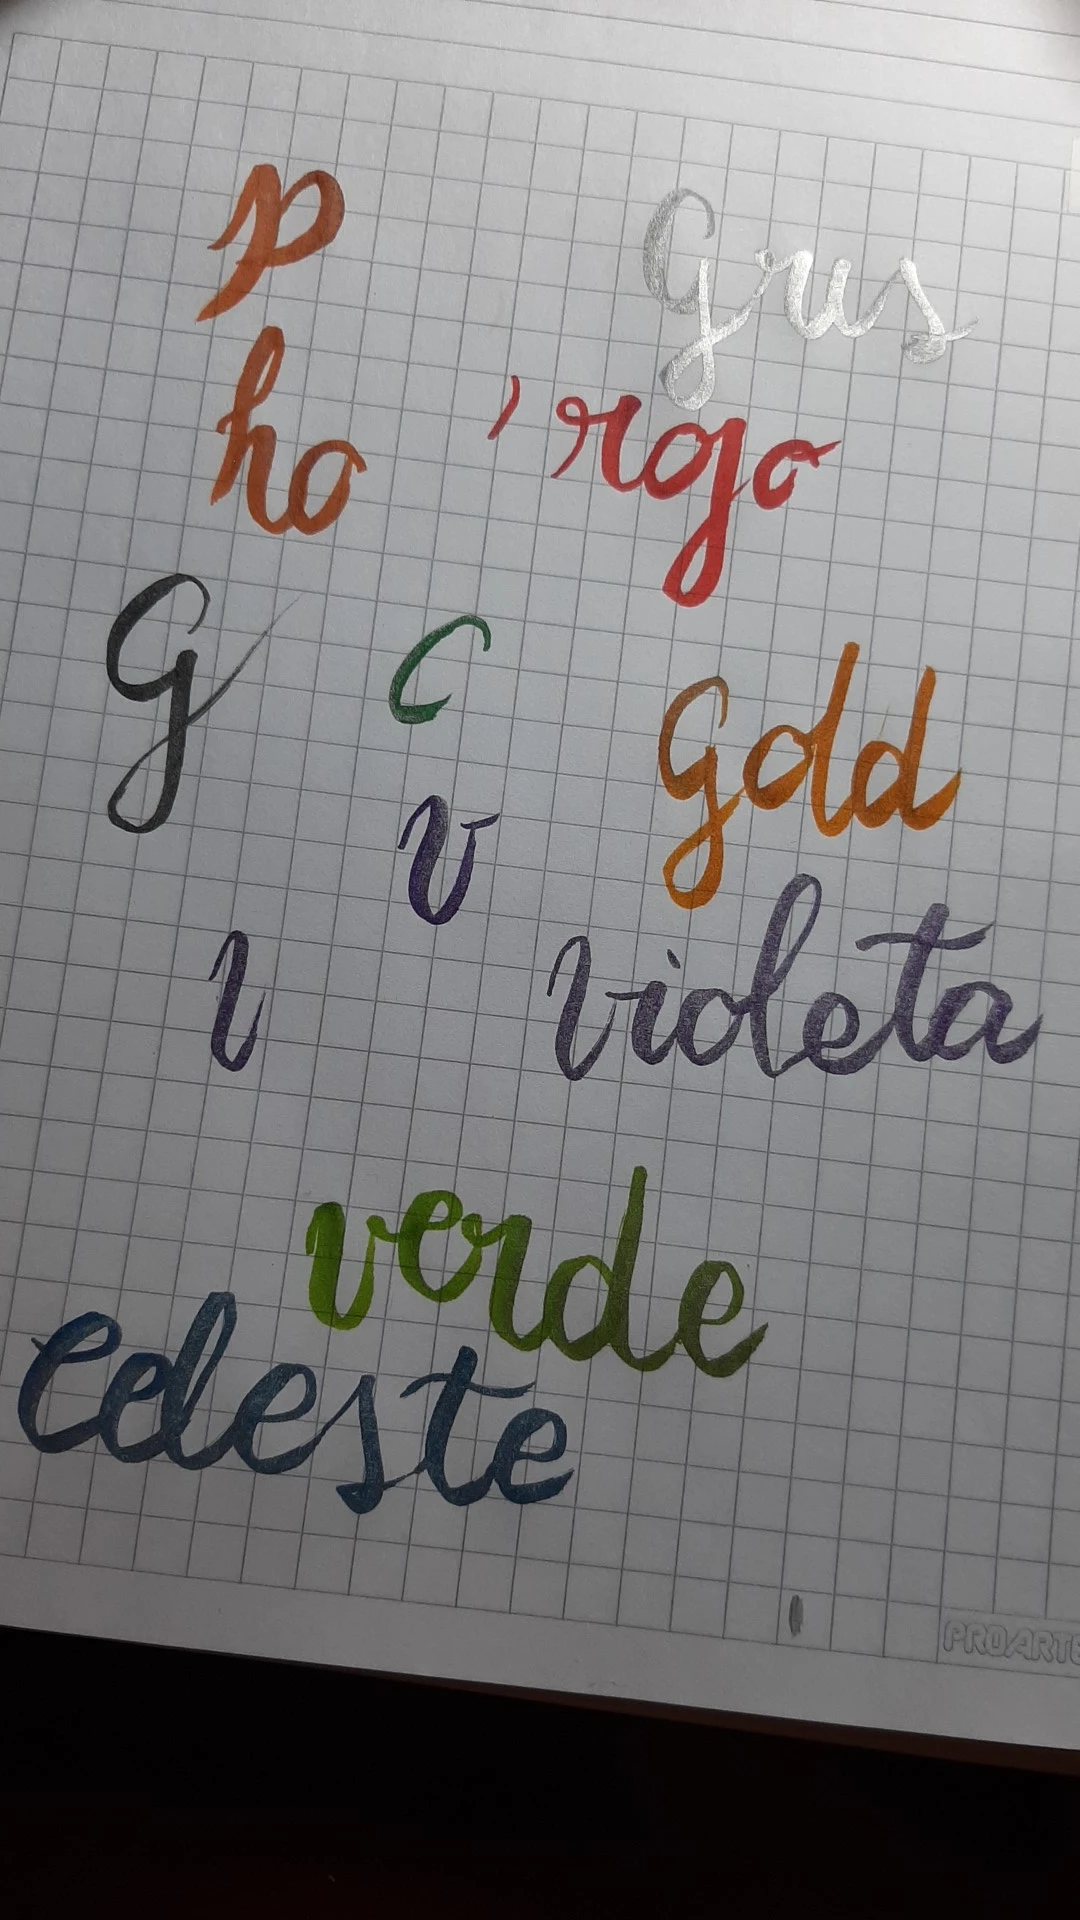 p
Grus
ho
' rojo
G
C
Gold
v
violeta
verde
Celeste
PROARTE